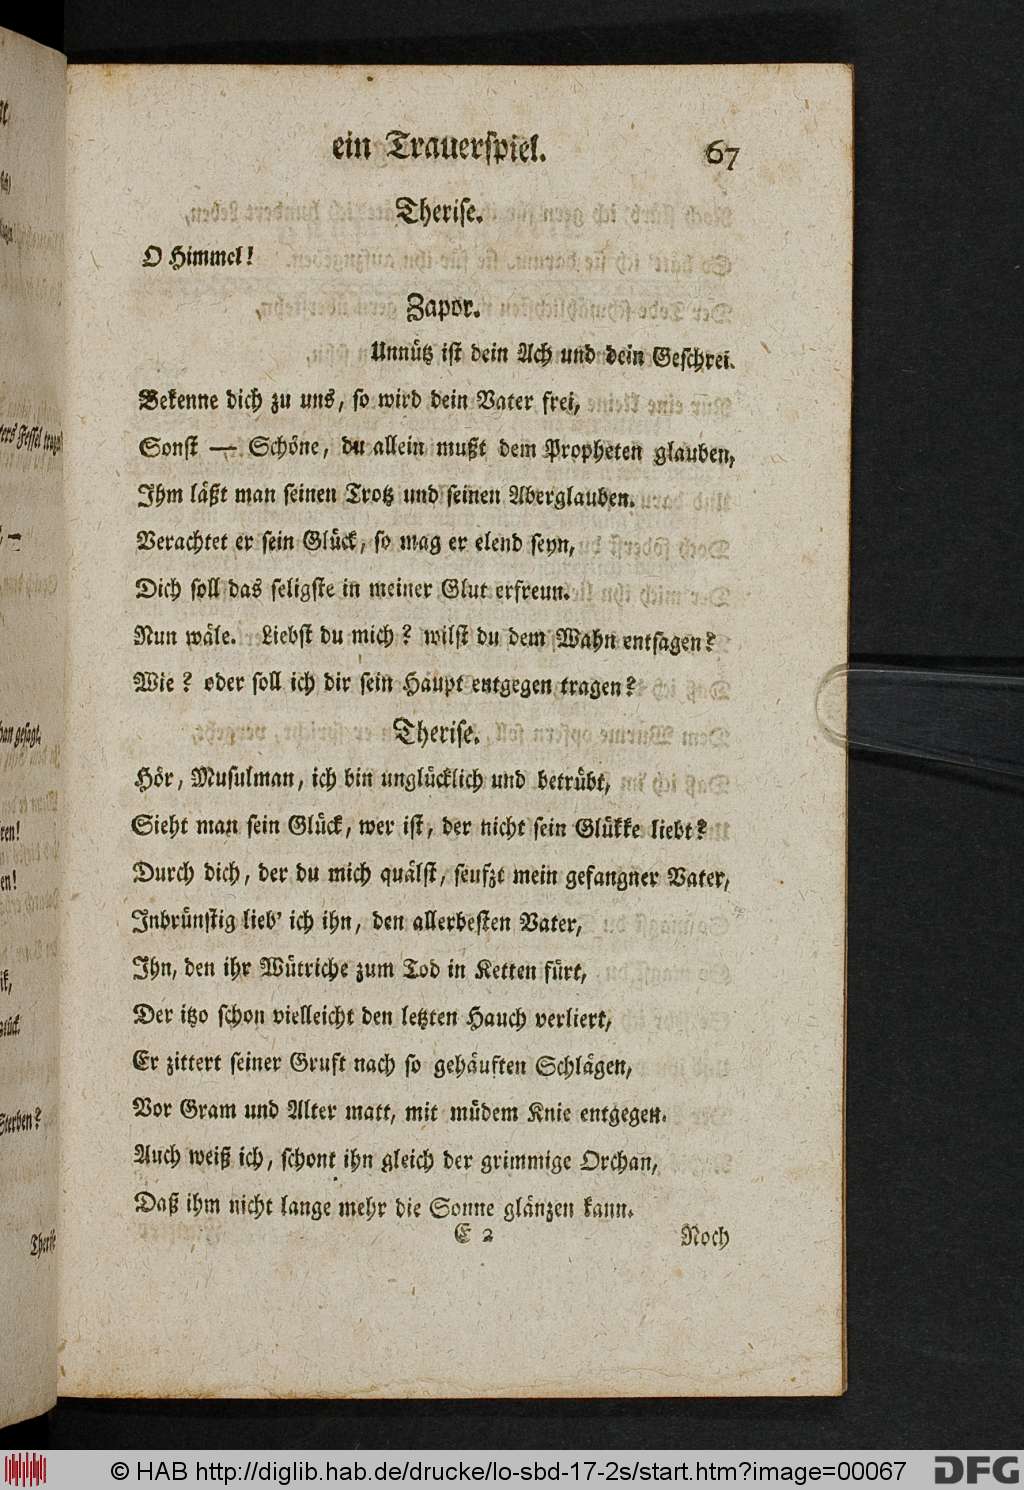 ein Trauerspiel. 67
Therise.
O Himmel!
Zapor.
Unnütz ist dein Ach und dein Geschrei.
Bekenne dich zu uns, so wird dein Vater frei,
Sonst — Schöne, du allein mußt dem Propheten glauben,
Ihm läßt man seinen Trotz und seinen Aberglauben.
Verachtet er sein Glück, so mag er elend seyn,
Dich soll das seligste in meiner Glut erfreun.
Nun wäle. Liebst du mich? wilst du dem Wahn entsagen?
Wie? oder soll ich dir sein Haupt entgegen tragen?
Therise.
Hör, Musulman, ich bin unglücklich und betrübt,
Sieht man sein Glück, wer ist, der nicht sein Glükke liebt?
Durch dich, der du mich quälst, seufzt mein gefangner Vater,
Inbrünstig lieb' ich ihn, den allerbesten Vater,
Ihn, den ihr Wütriche zum Tod in Ketten fürt,
Der itzo schon vielleicht den letzten Hauch verliert,
Er zittert seiner Gruft nach so gehäuften Schlägen,
Vor Gram und Alter matt, mit müdem Knie entgegen.
Auch weiß ich, schont ihn gleich der grimmige Orchan,
Daß ihm nicht lange mehr die Sonne glänzen kann.
E 2 Noch
© HAB http://diglib.hab.de/drucke/lo-sbd-17-2s/start.htm?image=00067
DFG